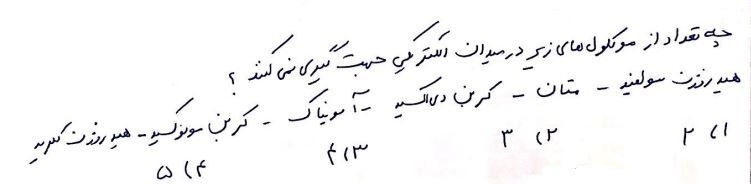 چه تعداد از مولکول‌های زیر در میدان الکتریکی جهت گیری نمی کنند ؟
هیدروژن سولفید - متان - کربن دی اکسید - آمونیاک - کربن مونوکسید - هیدروژن کلرید
۱) ۲ ۲) ۳ ۳) ۴ ۴) ۵